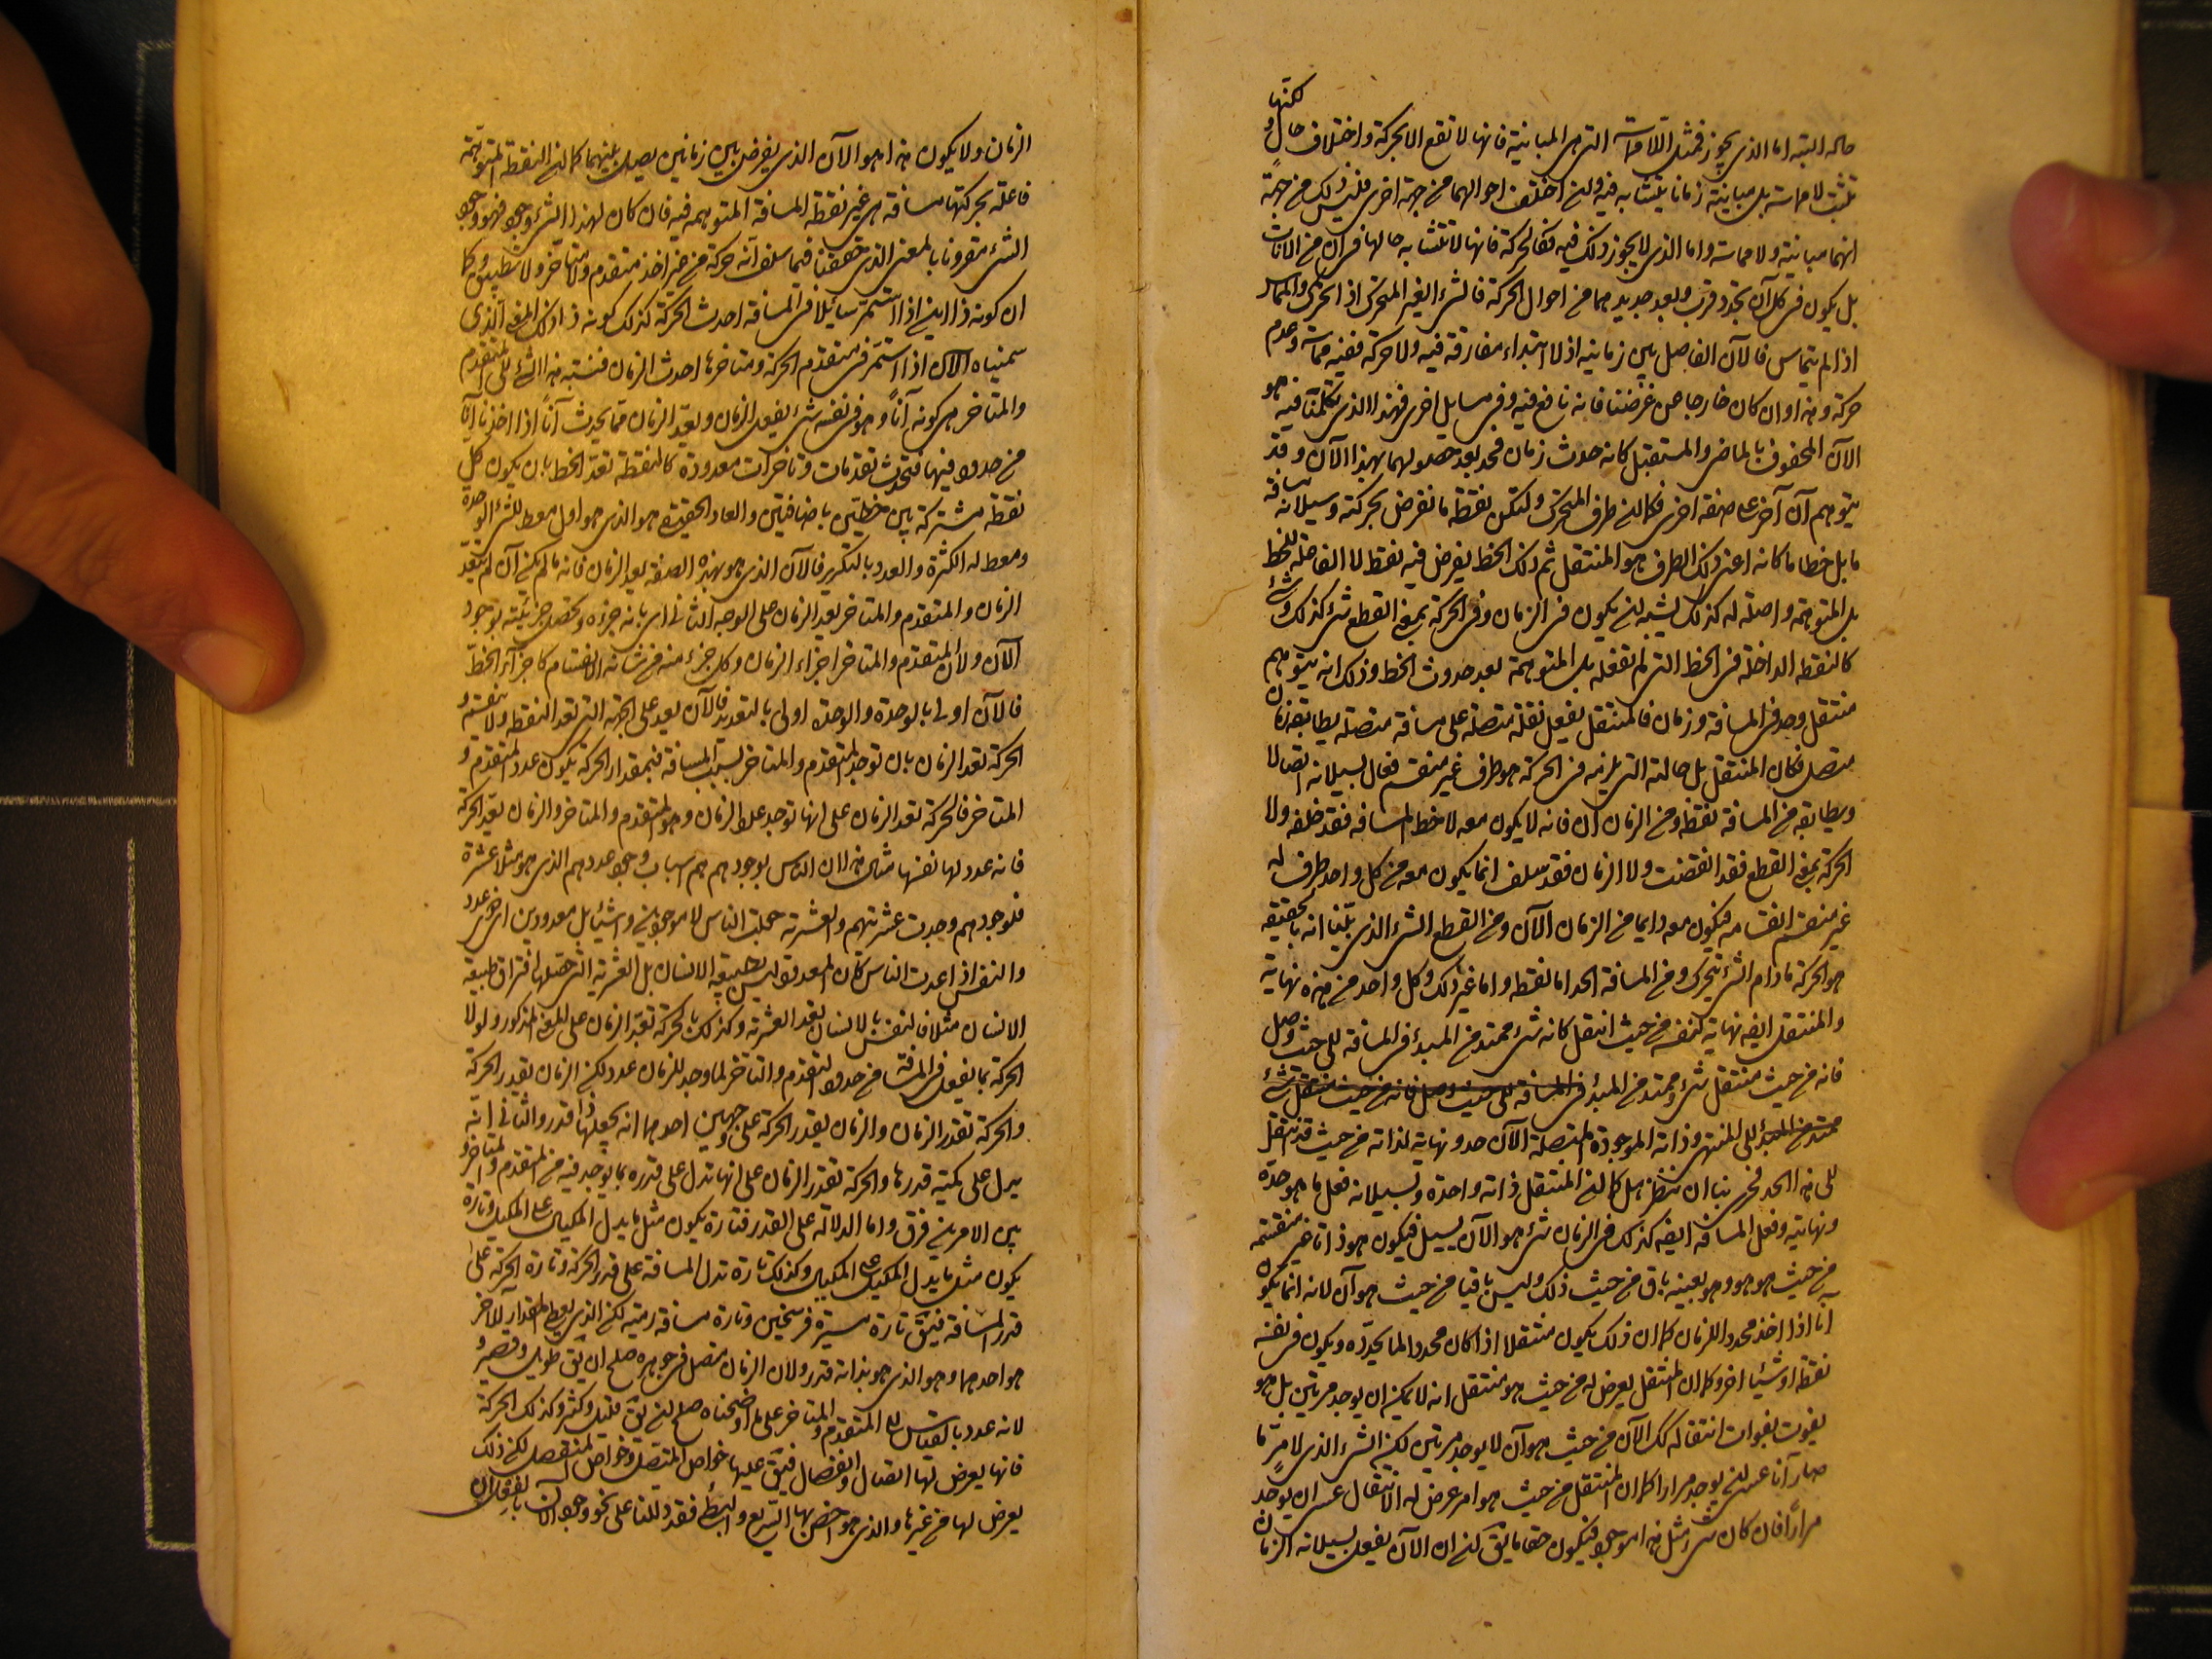 لكنها
حاله البتة اما الذى يجوز فمثل اللامماسة التى هى المباينة فانها لا تقع الا بحركة واختلاف حال و
تثبت لا مماسة بل مباينة زمانا يتشابه فيه ولئن اختلف احوالهما من جهة اخرى فليس ذلك من جهة
انهما مباينة ولا مماسة واما الذى لا يجوز ذلك فيه فكالحركة فانها لا تتشابه حالها فى آن من الآنات
بل يكون فى كل آن تجدد قرب وبعد جديد هما من احوال الحركة فالشىء الغير المتحرك اذا تحرك والمماس
اذا لم يتماس فالآن الفاصل بين زمانيه اذ لا ابتداء مفارقة فيه ولا حركة ففيه مماسة وعدم
حركة وهذا وان كان خارجا عن غرضنا فانه نافع فيه وفى مسايل اخرى فهذا الذى تكلمنا فيه هو
الآن المحفوف بالماضى والمستقبل كانه حدث زمان فحد بعد حصولهما بهذا الآن وقد
يتوهم آن آخر على صفة اخرى فكما ان طرف المتحرك ولتكن نقطة ما تفرض بحركته وسيلانه مسافة
ما بل خطا ما كانه اعنى ذلك الطرف هو المنتقل ثم ذلك الخط يفرض فيه نقط لا الفاعلة للخط
بل المتوهمة واصلة له كذلك يشبه ان يكون فى الزمان وفى الحركة بمعنى القطع شىء كذلك وشىء
كالنقطة الداخلة فى الخط التى لم تفعله بل المتوهمة بعد حدوث الخط وذلك انه يتوهم
منتقل وحد فى المسافة وزمان فالمنتقل يفعل نقلة متصلة على مسافة متصلة يطابقه زمان
متصل فكان المنتقل بل حالته التى تلزمه فى الحركة هو طرف غير منقسم فعال بسيلانه اتصالا
ويطابقه من المسافة نقطة ومن الزمان آن فانه لا يكون معه لا خط المسافة فقد خلفه ولا
الحركة بمعنى القطع فقد انقضت ولا الزمان فقد سلف انما يكون معه من كل واحد طرف له
غير منقسم انقسامه فيكون معه دايما من الزمان الآن ومن القطع الشىء الذى بينا انه بالحقيقة
هو الحركة ما دام الشىء يتحرك ومن المسافة الحد اما نقطة واما غير ذلك وكل واحد من هذه نهاية
والمنتقل ايضه نهاية لنفسه من حيث انتقل كانه شىء ممتد من المبدأ فى المسافة الى حيث وصل
فانه من حيث منتقل شىء ممتد من المبدأ فى المسافة الى حيث وصل فانه من حيث منتقل شىء
ممتد من المبدأ الى المنتهى وذاته الموجودة المتصلة الآن حد ونهاية لذاته من حيث قد انتقل
الى هذا الحد فحرى بنا ان ننظر هل كما ان المنتقل ذاته واحدة وبسيلانه فعل ما هو حده
ونهايته وفعل المسافة ايضه كذلك فى الزمان شىء هو الآن يسيل فيكون هو ذاتا غير منقسمة
من حيث هو هو وهو بعينه باق من حيث ذلك وليس باقيا من حيث هو آن لانه انما يكون
آنا اذا اخذ محددا للزمان كما ان ذلك يكون منتقلا اذا كان محددا لما يحدده ويكون فى نفسه
نقطة او شيئا آخر وكما ان المنتقل يعرض له من حيث هو منتقل انه لا يمكن ان يوجد مرتين بل هو
يفوت بفوات انتقاله كك الآن من حيث هو آن لا يوجد مرتين لكن الشىء الذى لامرٍ ما
صار آنا عسى ان يوجد مرارا كما ان المنتقل من حيث هو امر عرض له الانتقال عسى ان يوجد
مرارا فان كان شىء مثل هذا موجودا فيكون حقا ما يق ان الآن يفعل بسيلانه الزمان
الزمان ولا يكون هذا هو الآن الذى يفرض بين زمانين يصل بينهما كما ان النقطة المتوهمة
فاعلة بحركتها مسافة هى غير نقطة المسافة المتوهمة فيه فان كان لهذا الشىء وجود فهو وجود
الشىء مقرونا بالمعنى الذى حققنا فيما سلف انه حركة من غير اخذ متقدم ولا متاخر ولا تطبيق وكما
ان كونه ذا اين اذا استمر سائلا فى المسافة احدث الحركة كذلك كونه ذا ذلك المعنى الذى
سميناه الآن اذا استمر فى متقدم الحركة ومتاخرها احدث الزمان فنسبة هذا الشىء الى المتقدم
والمتاخر هى كونه آناً وهو فى نفسه شىء يفعل الزمان ويعد الزمان مما يحدث آناً اذا اخذنا آنا
من حدود فيها فتحدث تقدمات وتاخرات معدودة كالنقطة تعد الخط بان يكون كل
نقطة مشتركة بين خطين باضافتين والعاد الحقيقى هو الذى هو اول معط للشىء الوحدة
ومعط له الكثرة والعدد بالتكرير فالآن الذى هو بهذه الصفة يعد الزمان فانه ما لم يكن آن لم يتعد
الزمان والمتقدم والمتاخر يعد الزمان على الوجه الثانى اى بانه جزؤه وتحصل جزئيته بوجود
الآن ولان المتقدم والمتاخر اجزاء الزمان وكل جزء منه من شانه الانقسام كاجزآء الخط
فالآن اولى بالوحدة والوحدة اولى بالتعديد فالآن يعد على الجهة التى تعد النقطة ولا ينقسم و
الحركة تعد الزمان بان توجد المتقدم والمتاخر بسبب المسافة فبمقدار الحركة يكون عدد المتقدم و
المتاخر فالحركة تعد الزمان على انها توجد عدد الزمان وهو المتقدم والمتاخر والزمان يعد الحركة
فانه عدد لها نفسها مثال هذا ان الناس بوجودهم هم اسباب وجود عددهم الذى هو مثلا عشرة
فلوجودهم وجدت عشرتهم والعشرية جعلت الناس لا موجودين واشياء بل معدودين اى ذوى عدد
والنفس اذا عدت الناس كان المعدود ليس طبيعة الانسان بل العشرية التى حصلها افتراق طبيعة
الانسان مثلا فالنفس بالانسان تعد العشرية وكذلك بالحركة تعد الزمان على المعنى المذكور ولولا
الحركة بما تفعل فى المسافة من حدود التقدم والتاخر لما وجد للزمان عدد لكن الزمان تقدر الحركة
والحركة تقدر الزمان والزمان يقدر الحركة على وجهين احدهما انه يجعلها ذا قدر والثانى انه
يدل على كمية قدرها والحركة تقدر الزمان على انها تدل على قدره بما يوجد فيه من المتقدم والمتاخر و
بين الامرين فرق واما الدلالة على القدر فتارة يكون مثل ما يدل المكيال على المكيل وتارة
يكون مثل ما يدل المكيل على المكيال وكذلك تارة تدل المسافة على قدر الحركة وتارة الحركة على
قدر المسافة فيق تارة مسيرة فرسخين وتارة مسافة رمية لكن الذى يعطى المقدار للآخر
هو احدهما وهو الذى هو بذاته قدر ولان الزمان متصل فى جوهره صلح ان يق طويل وقصير و
لانه عدد بالقياس الى المتقدم والمتاخر على ما اوضحناه صلح ان يق قليل وكثير وكذلك الحركة
فانها يعرض لها اتصال وانفصال فيق عليها خواص المتصل وخواص المنفصل لكن ذلك
يعرض لها من غيرها والذى هو اخص بها السريع والبطىء فقد دللنا على نحو وجود الآن بالفعل ان